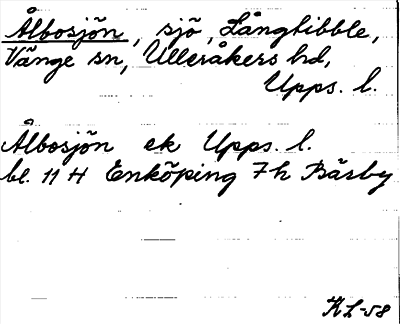 Ålbosjön, sjö, Långtibble,
Vänge sn, Ulleråkers hd,
Upps. l.
Ålbosjön ek Upps. l.
bl. 11 H Enköping 7h Bärby
KL-58